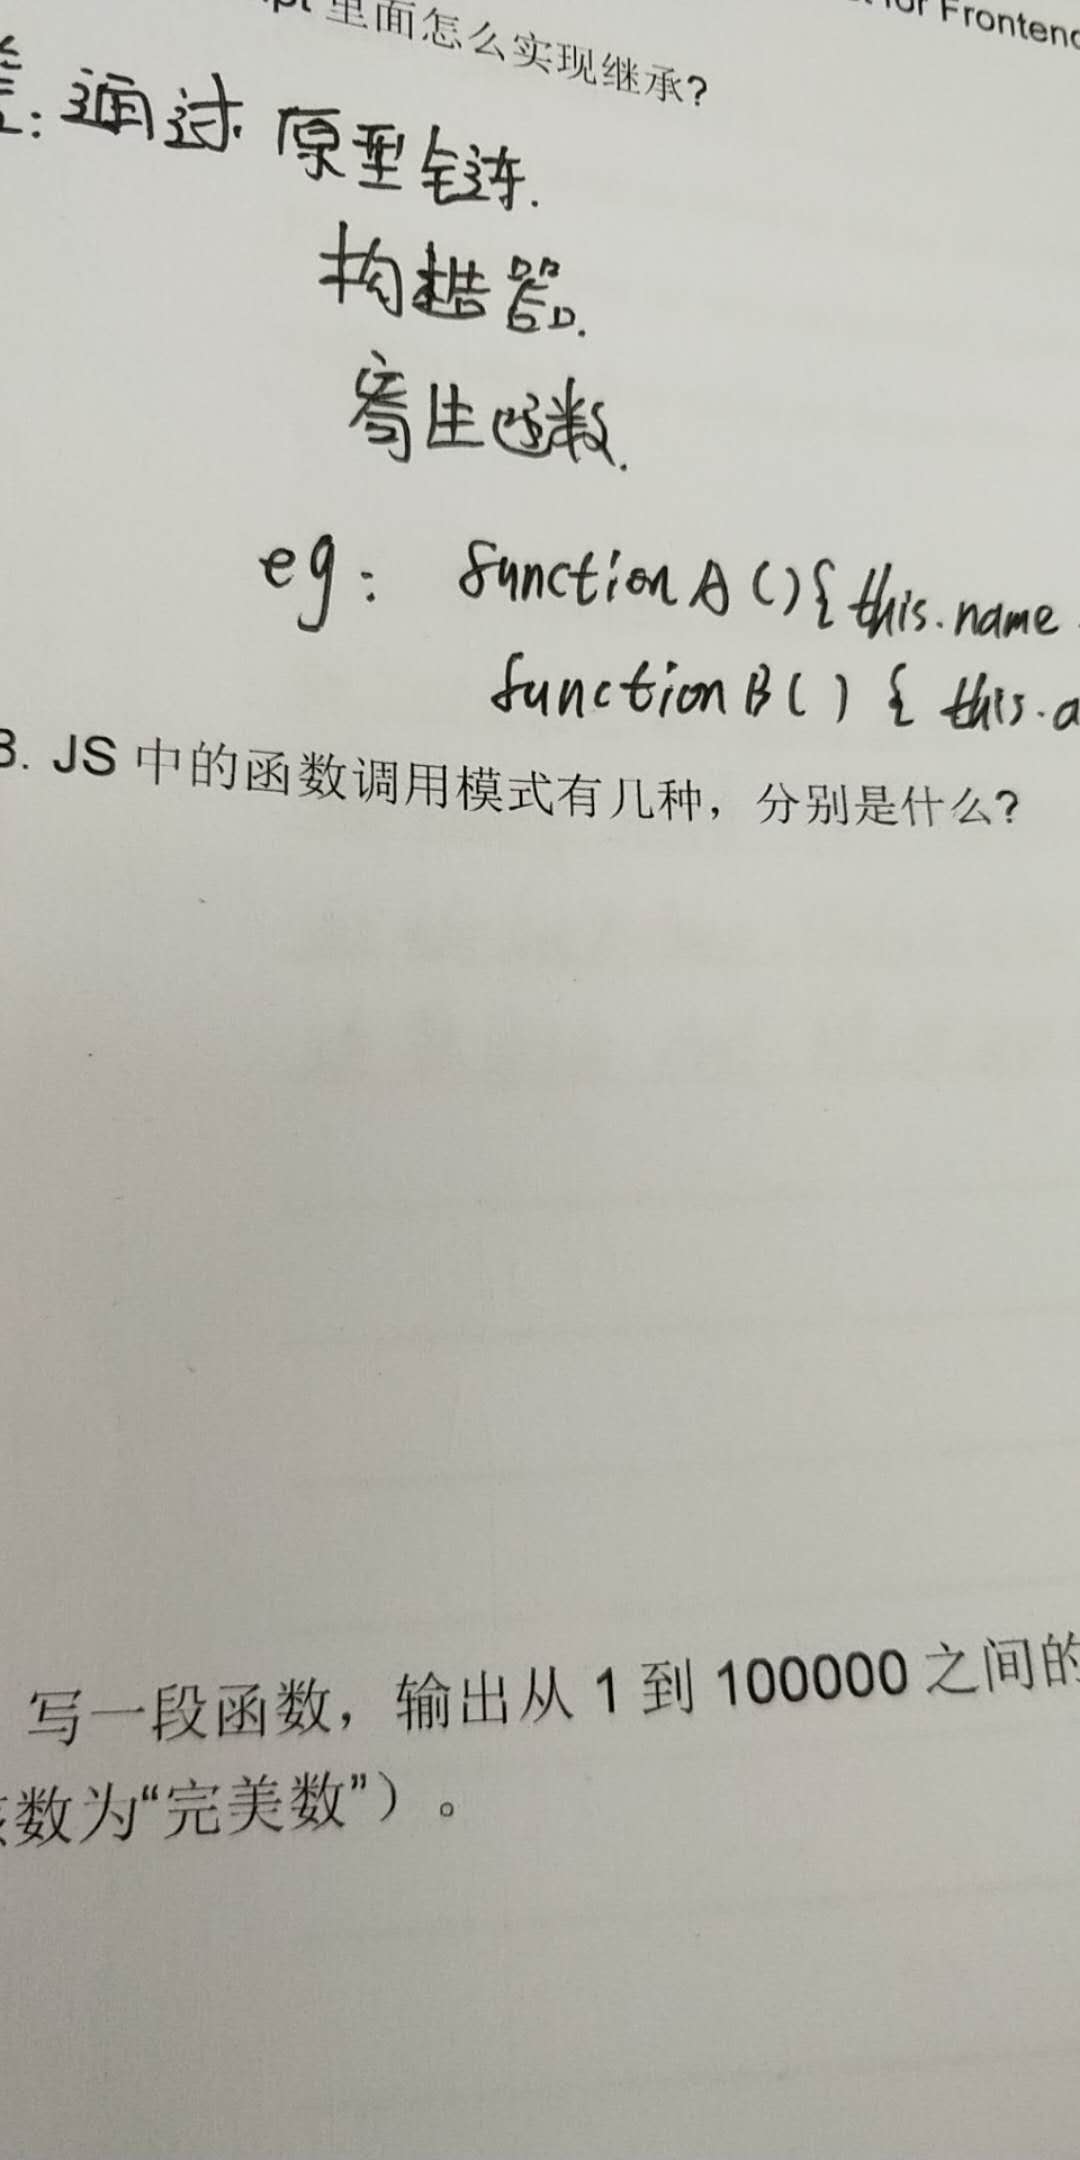 for Frontend
里面怎么实现继承?
答:通过 原型链.
构造器.
寄生函数.
eg: function A(){ this.name
function B() { this.a
3. JS 中的函数调用模式有几种，分别是什么?
写一段函数，输出从 1 到 100000 之间的
数为“完美数”）。